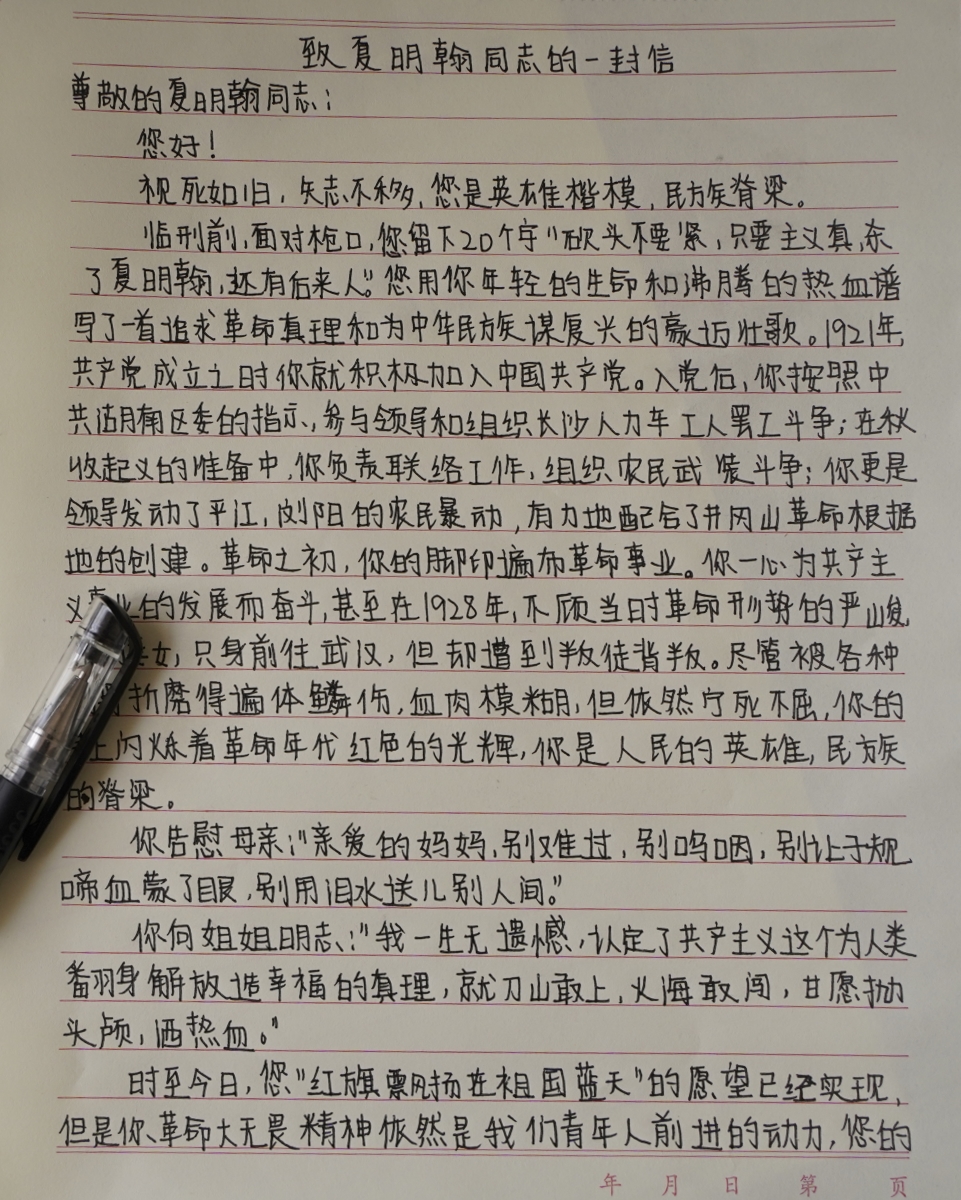 致夏明翰同志的一封信
尊敬的夏明翰同志：
您好！
视死如归，矢志不移，您是英雄楷模，民族脊梁。
临刑前，面对枪口，您留下20个字“砍头不要紧，只要主义真，杀
了夏明翰，还有后来人”。您用你年轻的生命和沸腾的热血谱
写了一首追求革命真理和为中华民族谋复兴的豪迈壮歌。1921年，
共产党成立之时你就积极加入中国共产党。入党后，你按照中
共湖南区委的指示，参与领导和组织长沙人力车工人罢工斗争；在秋
收起义的准备中，你负责联络工作，组织农民武装斗争；你更是
领导发动了平江，浏阳的农民暴动，有力地配合了井冈山革命根据
地的创建。革命之初，你的脚印遍布革命事业。你一心为共产主
义事业的发展而奋斗，甚至在1928年，不顾当时革命形势的严峻，
女，只身前往武汉，但却遭到叛徒背叛。尽管被各种
折磨得遍体鳞伤，血肉模糊，但依然宁死不屈，你的
上闪烁着革命年代红色的光辉，你是人民的英雄，民族
的脊梁。
你告慰母亲：“亲爱的妈妈，别难过，别呜咽，别让子规
啼血蒙了眼，别用泪水送儿别人间。”
你向姐姐明志：“我一生无遗憾，认定了共产主义这个为人类
翻身解放造幸福的真理，就刀山敢上，火海敢闯，甘愿抛
头颅，洒热血。”
时至今日，您“红旗飘扬在祖国蓝天”的愿望已经实现，
但是你、革命大无畏精神依然是我们青年人前进的动力，您的
年 月 日 第 页